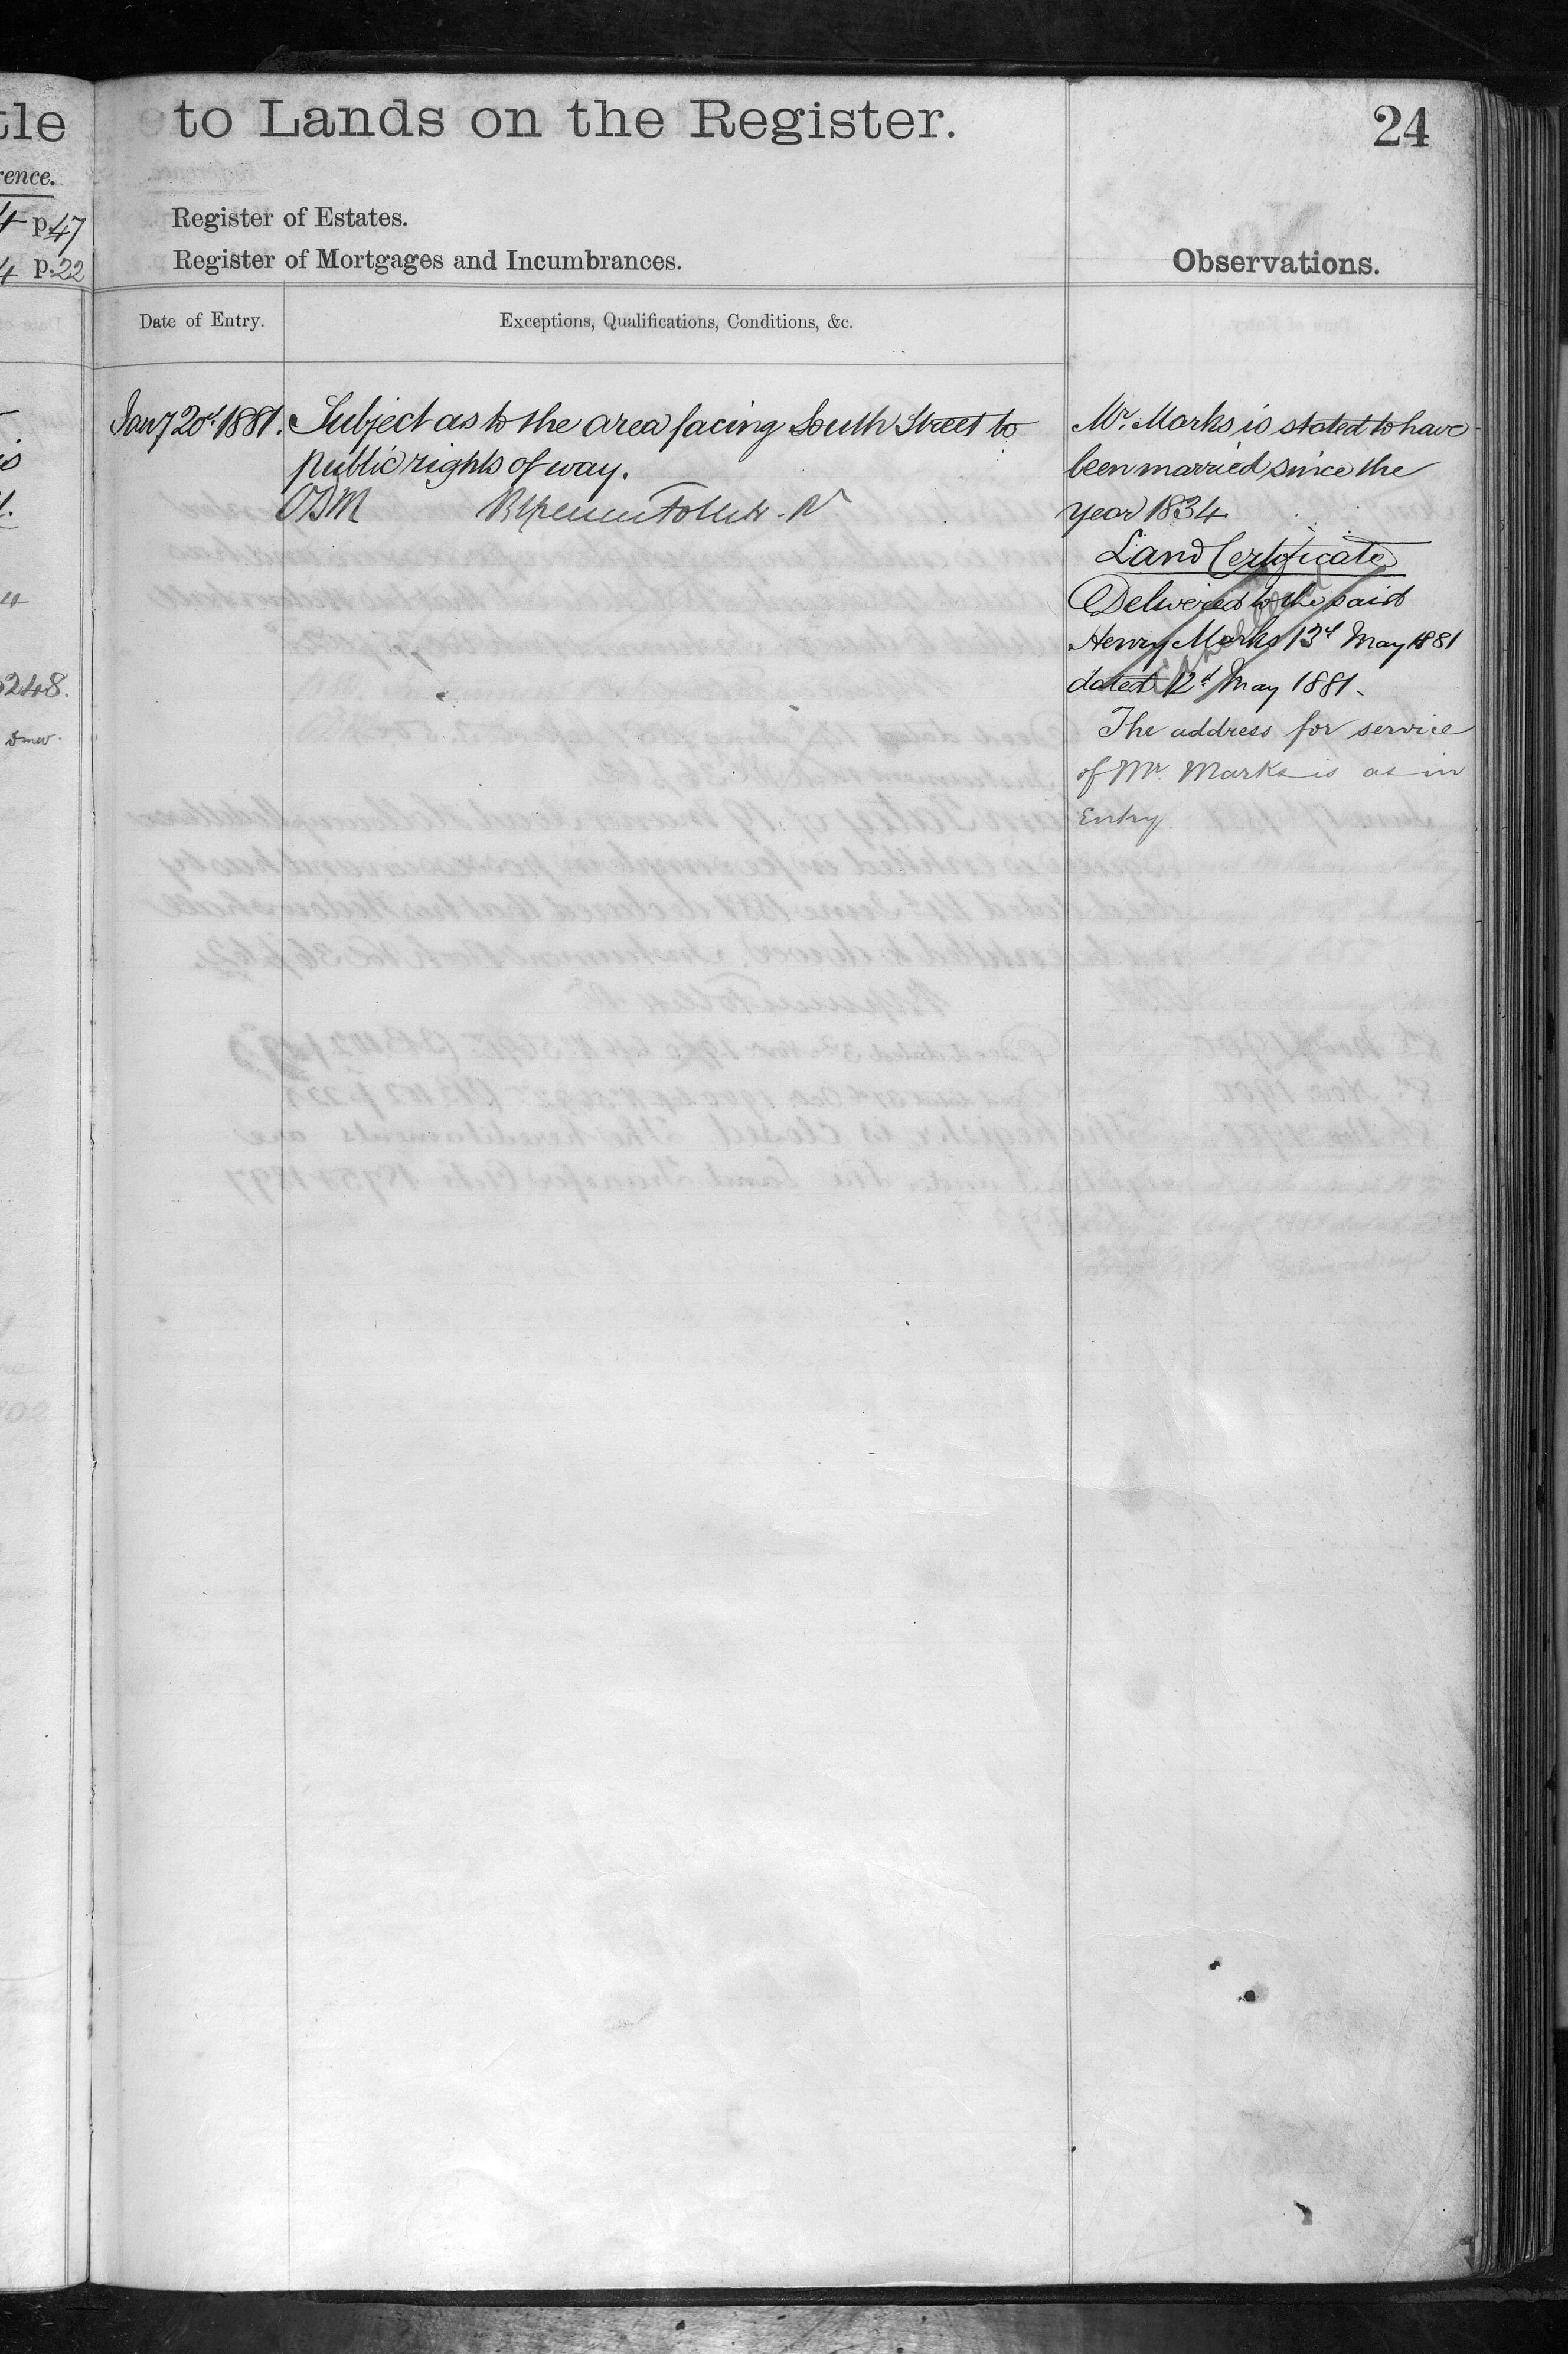 tle
to Lands on the Register.
24
rence.
4 p.47
4 p.22
Register of Estates.
Register of Mortgages and Incumbrances.
Observations.
Date of Entry.
Exceptions, Qualifications, Conditions, &c.
Jany 20th 1881.
Subject as to the area facing South Street to
public rights of way.
Mr. Marks is stated to have
been married since the
year 1834
Land Certificate
Delivered to the said
Henry Marks 13th May 1881
dated 12th May 1881.
The address for service
of Mr. Marks is as in
Entry
248.